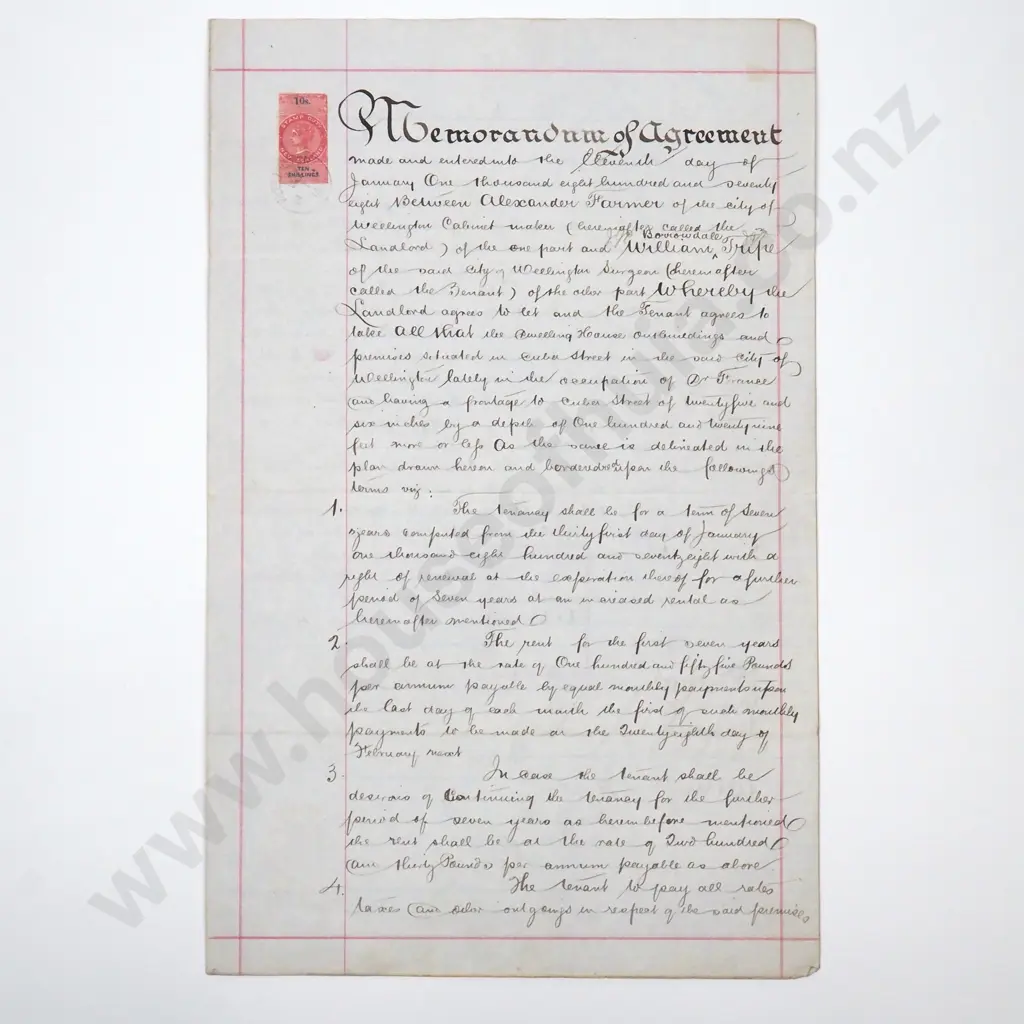 10s.
STAMP DUTY
TEN
SHILLINGS
Memorandum of Agreement
made and entered into the Eleventh day of
January One thousand eight hundred and seventy
eight Between Alexander Farmer of the city of
Wellington Cabinet maker (hereinafter called the
Borrowdale
Landlord) of the one part and William ^ Tripe
of the said city of Wellington Surgeon (hereinafter
called the Tenant) of the other part Whereby the
Landlord agrees to let and the Tenant agrees to
take All that the Dwelling House outbuildings and
premises situated in Cuba Street in the said City of
Wellington lately in the occupation of Dr France
and having a frontage to Cuba Street of twentyfive and
six inches by a depth of One hundred and twenty nine
feet more or less As the same is delineated in the
plan drawn hereon and bordered upon the following
terms viz:
1. The tenancy shall be for a term of Seven
years computed from the thirty first day of January
one thousand eight hundred and seventy eight with a
right of renewal at the expiration thereof for a further
period of Seven years at an increased rental as
hereinafter mentioned
2. The rent for the first seven years
shall be at the rate of One hundred and fifty five Pounds
per annum payable by equal monthly payments upon
the last day of each month the first of such monthly
payments to be made on the Twenty eighth day of
February next
3. In case the tenant shall be
desirous of Continuing the tenancy for the further
period of seven years as hereinbefore mentioned
the rent shall be at the rate of Two hundred
and thirty Pounds per annum payable as above
4. The tenant to pay all rates
taxes and other outgoings in respect of the said premises
www.houseofhulme.co.nz